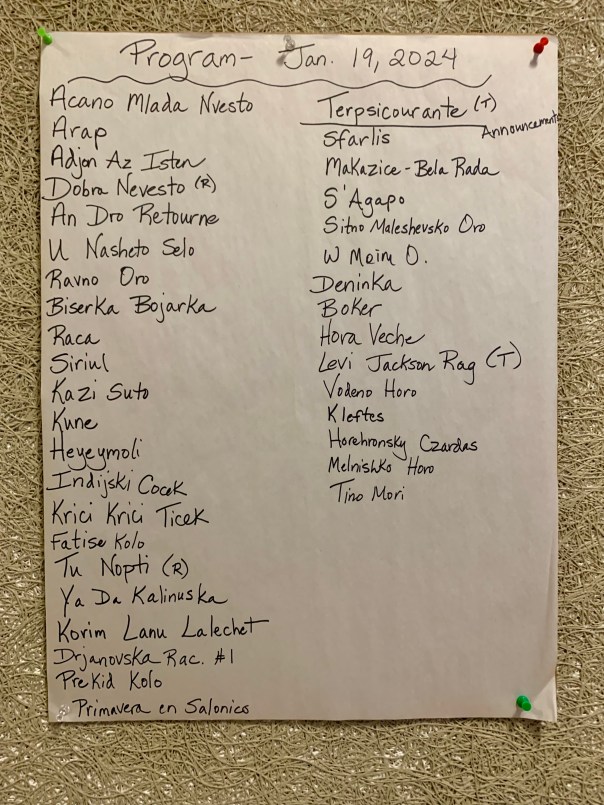 Program- Jan. 19, 2024
Acano Mlada Nvesto
Arap
Adjon Az Isten
Dobra Nevesto (R)
An Dro Retourne
U Nasheto Selo
Ravno Oro
Biserka Bojarka
Raca
Siriul
Kazi Suto
Kune
Heyeymoli
Indijski Cocek
Krici Krici Ticek
Fatise Kolo
Tu Nopti (R)
Ya Da Kalinuska
Korim Lanu Lalechet
Drjanovska Rac. #1
Prekid Kolo
Primavera en Salonico
Terpsicourante (T)
Announcements
Sfarlis
Makazice-Bela Rada
S'Agapo
Sitno Maleshevsko Oro
W Moim O.
Deninka
Boker
Hora Veche
Levi Jackson Rag (T)
Vodeno Horo
Kleftes
Horehronsky Czardas
Melnishko Horo
Tino Mori